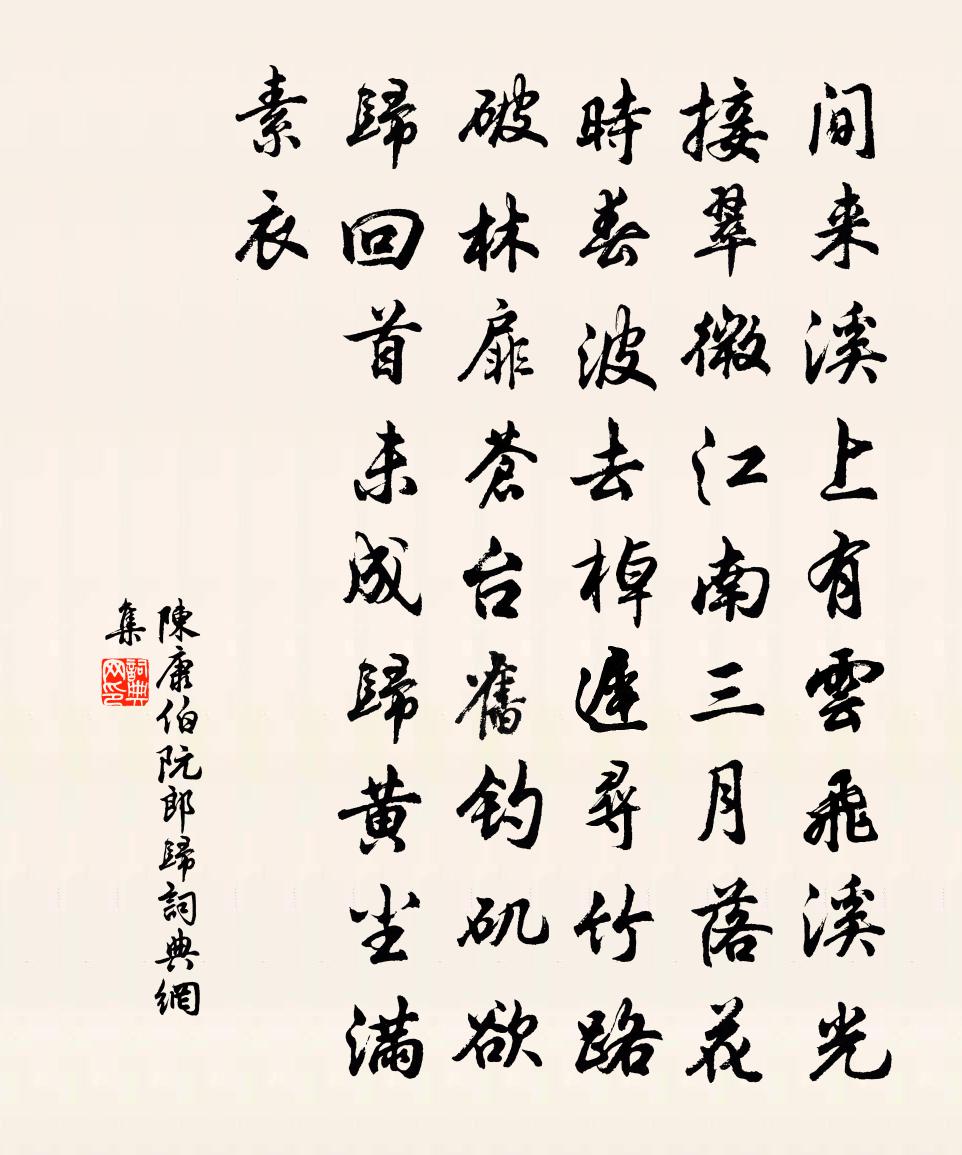 间来溪上有雲飛溪光
接翠微江南三月落花
時春波去棹遲尋竹路
破林扉蒼台舊钓矶欲
歸回首未成歸黄尘满
素衣
陳康伯阮郎歸詞典網
集
詞典
网印